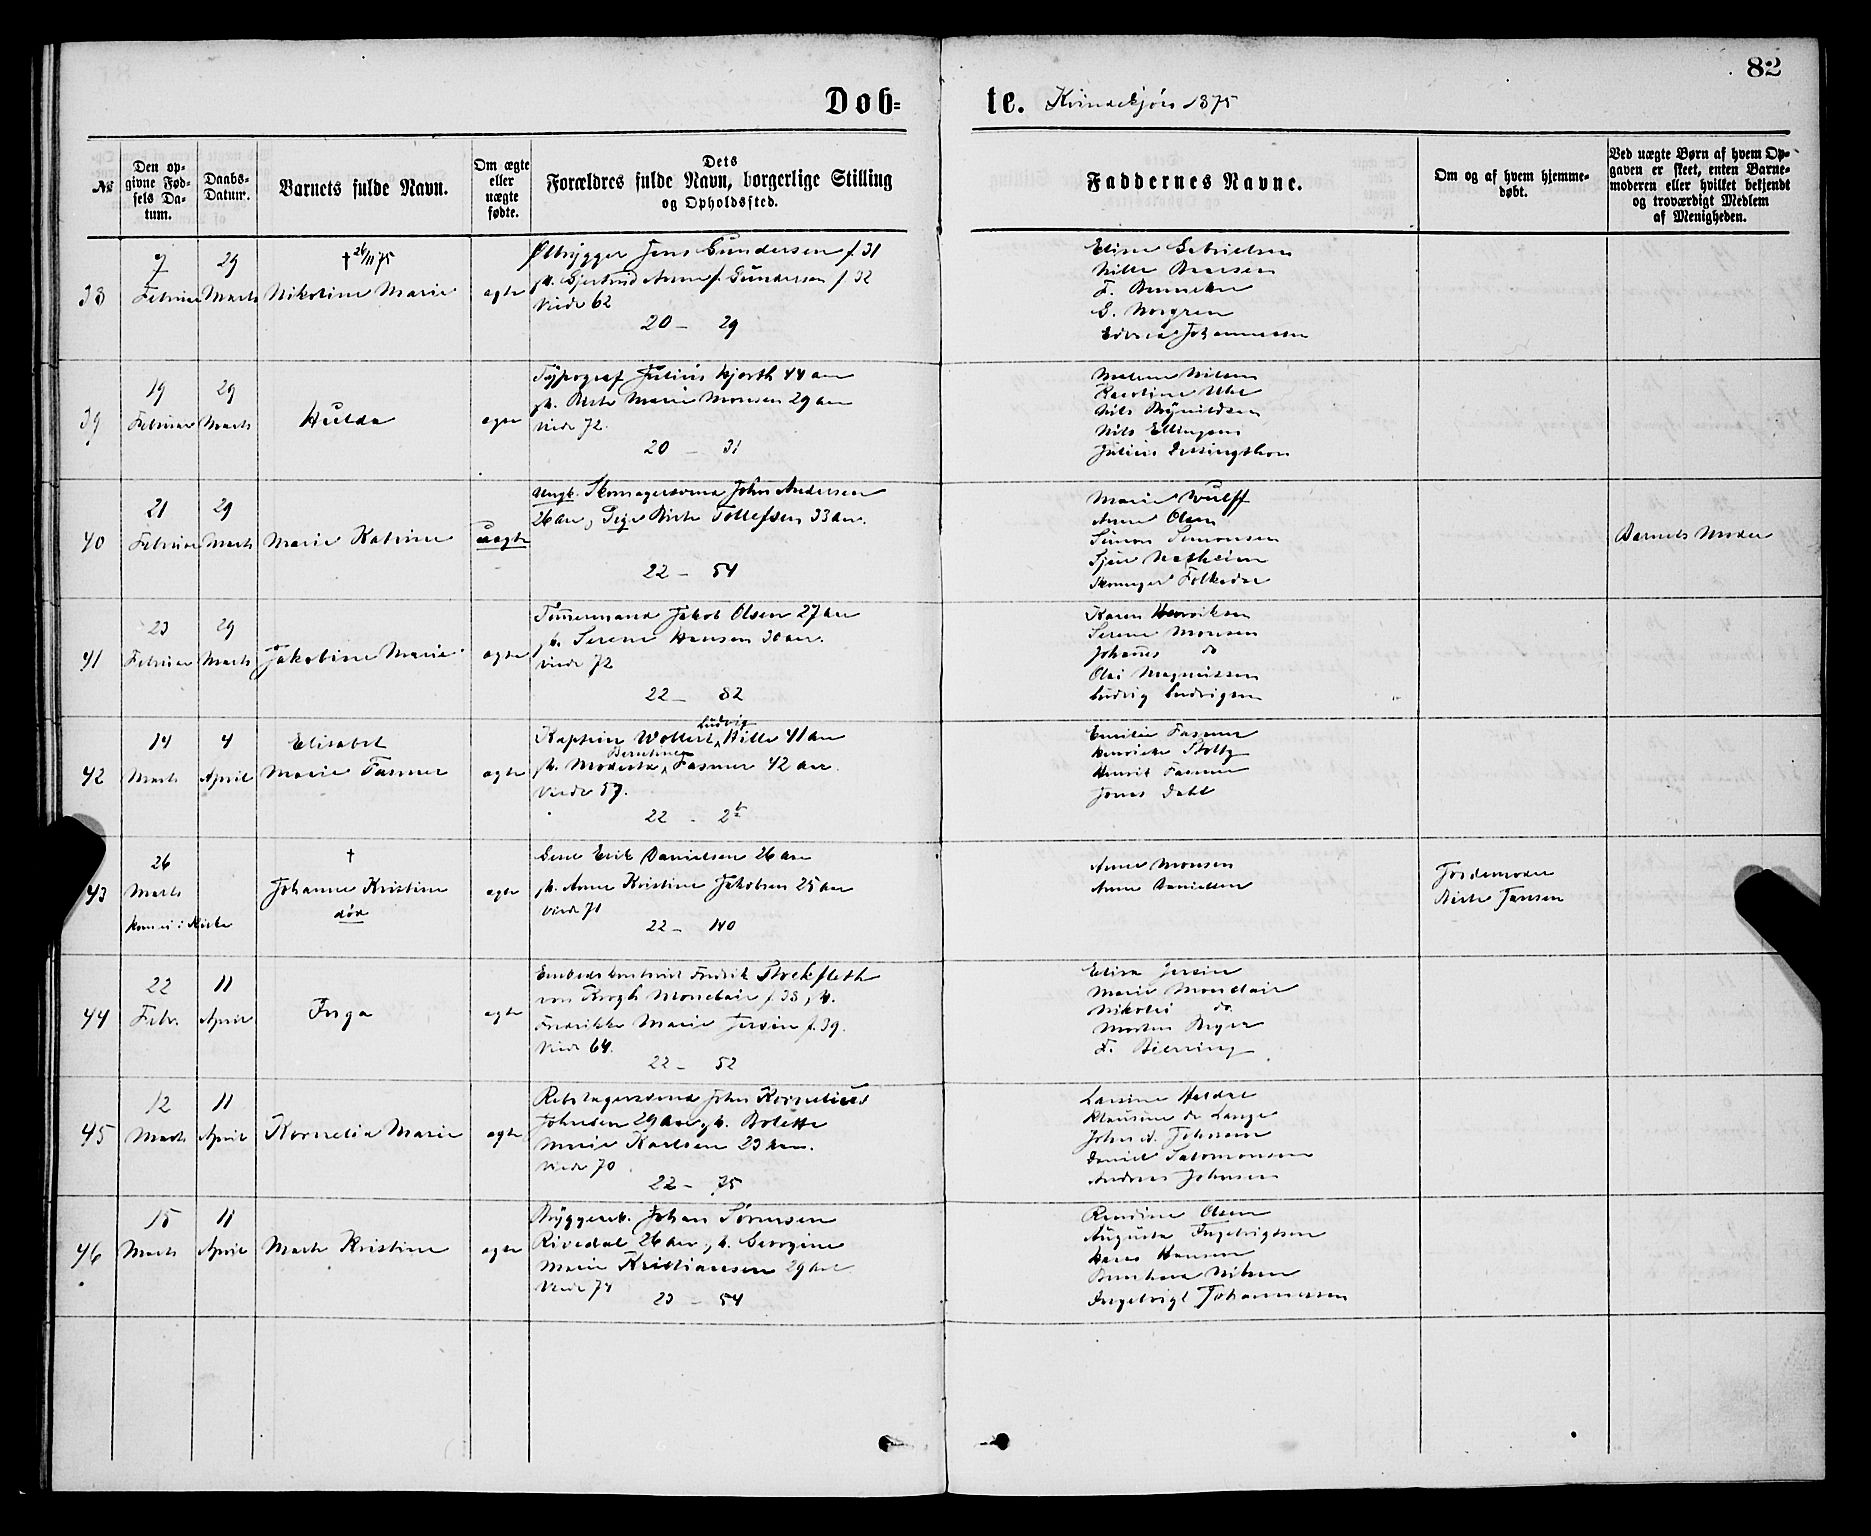 82
Døb= te. Kvindekjøn 1875
№
Den opgivne Fødsels Datum.
Daabs-Datum.
Barnets fulde Navn.
Om ægte eller uægte fødte.
Dets Forældres fulde Navn, borgerlige Stilling og Opholdssted.
Faddernes Navne.
Om og af hvem hjemmedøbt.
Ved uægte Børn af hvem Opgaven er skeet, enten Barnemoderen eller hvilket bekjendt og troværdigt Medlem af Menigheden.
38
7 Februar
29 Marts
† 26/11 75
Nikoline Marie
ægte
Ølbrygger Jens Gundersen f. 31
Gjertrud Anne f. Gundersen f. 32
Viede 62
20 – 29
Elise Gabrielsen
Edvard Johannessen
39
19 Februar
29 Marts
Hulda
ægte
Typograf Julius Hjorth 44 aar
h. Birte Marie Monsen 29 aar
viede 72.
20 – 31
Nils Brynildsen
Nils Ellingsen
40
21 Februar
29 Marts
Marie Katrine
uægte
Ungk. Skomagersvend John Andersen
26 aar, Pige Birte Tollefsen 33 aar.
22 – 54
Marie Wulff
Anne Olsen
Simon Simonsen
Barnets Moder
41
23 Februar
29 Marts
Jakobine Marie
ægte
Tømmermand Jakob Olsen 27 aar
h. Serene Hansen 30 aar.
viede 72
22 – 82
Karen Henriksen
Serene Monsen
Johannes do
Olai Magnussen
Ludvig Ludvigsen
42
14 Marts
4 April
Elisabet
Marie Fasmer
ægte
Kaptein Wollert Ludvig Hille 41 aar
h. Modesta Berntine Fasmer 42 aar.
Viede 57.
22 - 2b
Emilie Fasmer
Henrikke Stoltz
Henrik Fasmer
Jonas Dahl
43
26 Marts
†
Johanne Kristine
død
ægte
Erik Danielsen 26 aar
h. Anne Kristine Jakobsen 25 aar
viede 71
22 – 140
Anne Monsen
Anne Danielsen
Jordemoder
Birte Jansen
44
22 Febr.
11 April
Inga
ægte
Fredrik Stockfleth
von Krogh Monclair f. 38, h.
Fredrikke Marie Jersin f. 39.
Viede 64.
22 – 52
Elisa Jersin
Marie Monclair
Nikolai do.
Morten Beyer
45
12 Marts
11 April
Kornelia Marie
ægte
Rebslagersvend John Kornelius
Johnsen 29 aar, h. Bolette
Marie Karlsen 23 aar.
Viede 70
22 – 75
Klausine de Lange
Daniel Salomonsen
Andreas Johnsen
46
15 Marts
11 April
Marte Kristine
ægte
Johan Sørensen
Rivedal 26 aar, h. Georgine
Marie Kristiansen 29 aar
Viede 74
23 – 54
Olsen
Augusta Ingebrigtsen
Hansen
Nilsen
Ingebrigt Johannessen